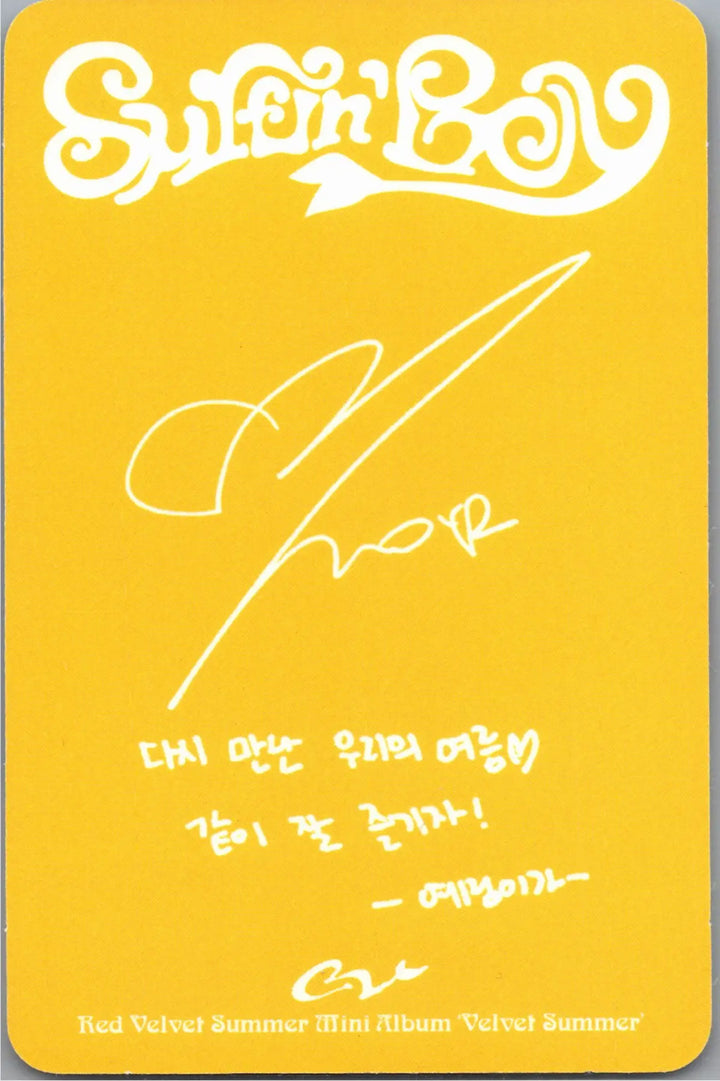 Surfin' Boy
다시 만난 우리의 여름♡
같이 잘 즐기자!
- 예림이가 -
Red Velvet Summer Mini Album 'Velvet Summer'